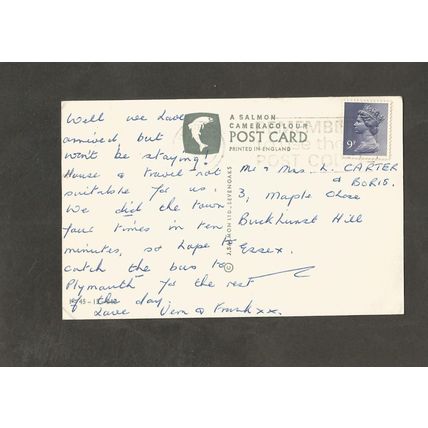 Well we have
arrived but
won't be staying!
House & travel not
suitable for us.
We did the town
four times in ten
minutes, so hope to
catch the bus to
Plymouth for the rest
of the day.
Love Vera & Frank xx.
A SALMON
CAMERACOLOUR
POST CARD
PRINTED IN ENGLAND
© J. SALMON LTD., SEVENOAKS
9P
POST CO
Mr & Mrs. L. CARTER
& BORIS.
3, Maple Close
Buckhurst Hill
Essex.